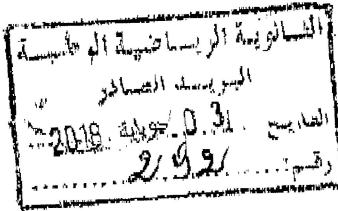 الثانوية الرياضية الوطنية
البريد الصادر
التاريخ 03 جويلية 2018
رقم: 292